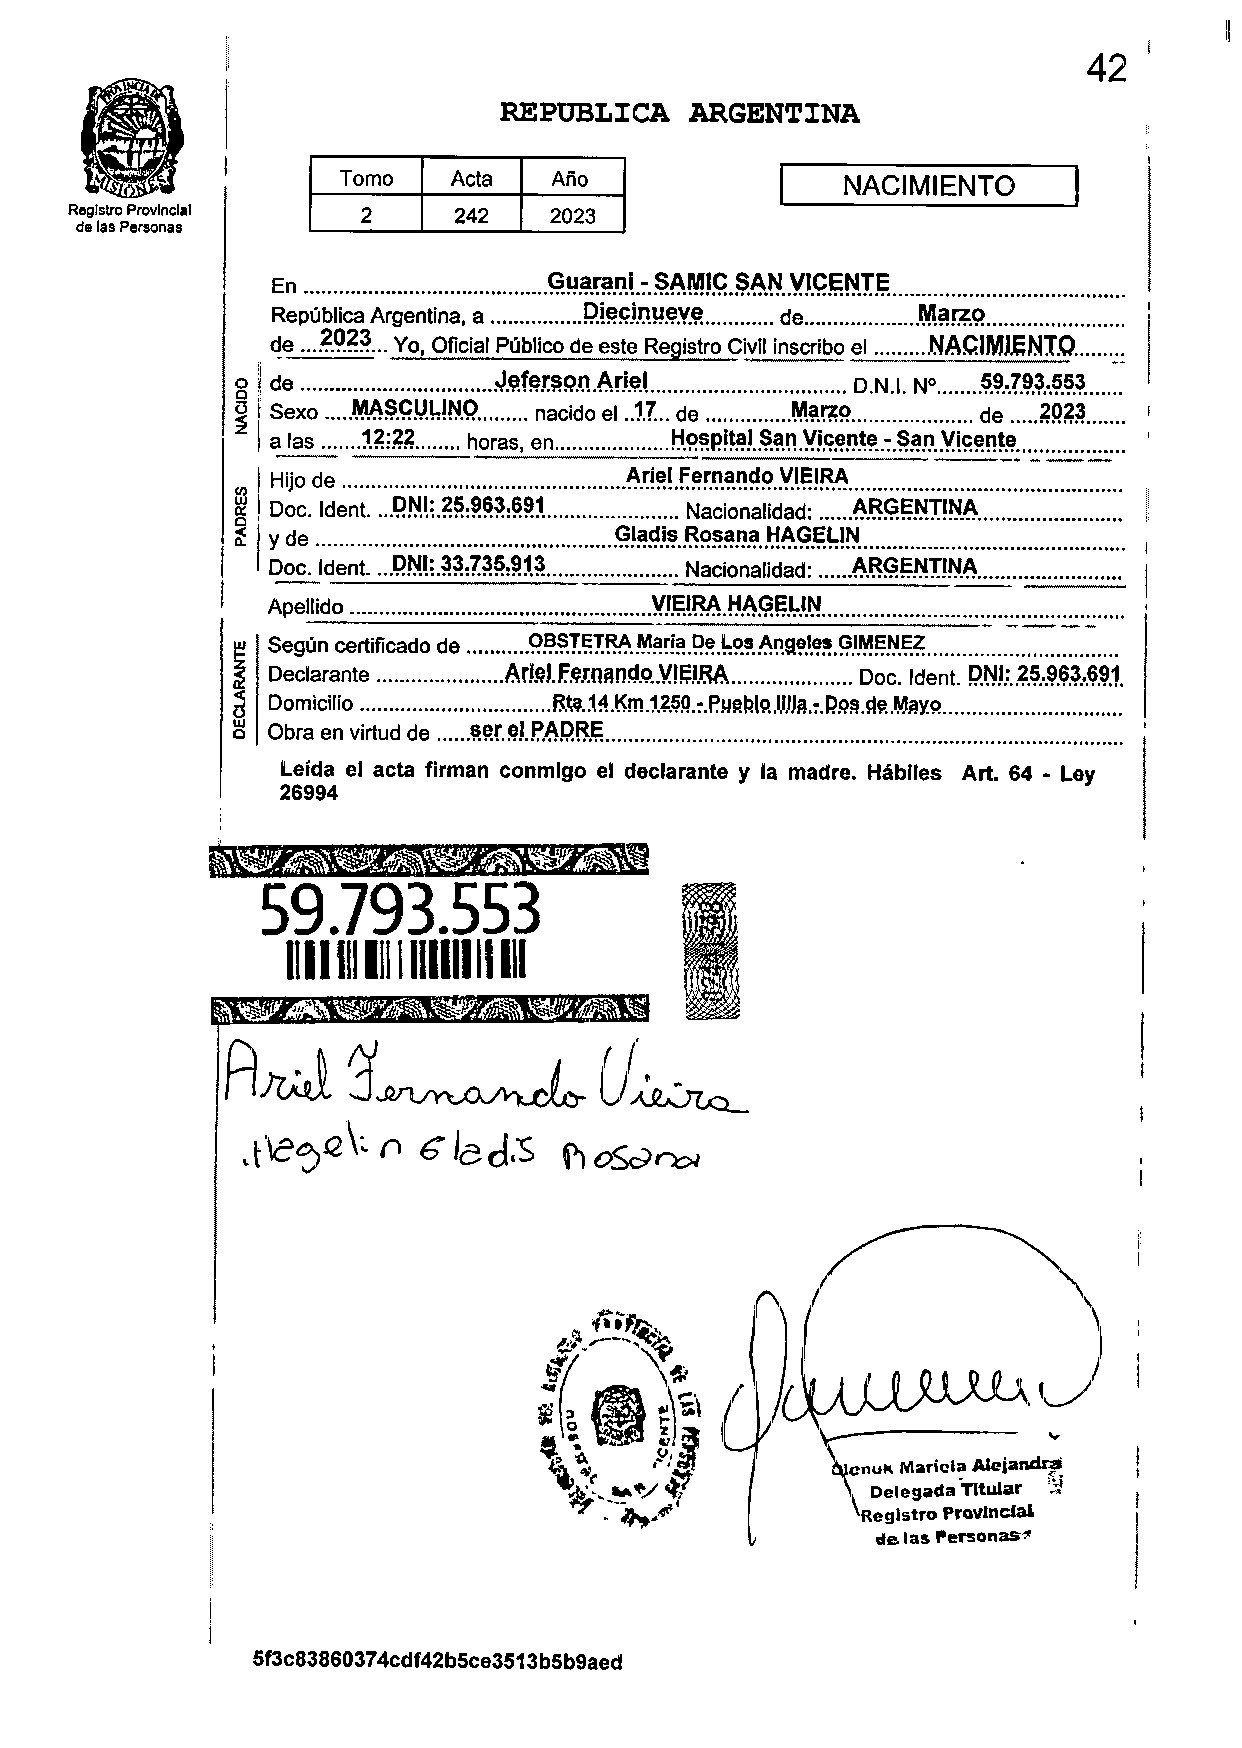 42
REPUBLICA ARGENTINA
PROVINCIA DE MISIONES
Registro Provincial
de las Personas
Tomo Acta Año
2 242 2023
NACIMIENTO
En Guarani - SAMIC SAN VICENTE
República Argentina, a Diecinueve de Marzo
de 2023 Yo, Oficial Público de este Registro Civil inscribo el NACIMIENTO
NACIDO
de Jeferson Ariel D.N.I. Nº 59.793.553
Sexo MASCULINO nacido el 17 de Marzo de 2023
a las 12:22 horas, en Hospital San Vicente - San Vicente
PADRES
Hijo de Ariel Fernando VIEIRA
Doc. Ident. DNI: 25.963.691 Nacionalidad: ARGENTINA
y de Gladis Rosana HAGELIN
Doc. Ident. DNI: 33.735.913 Nacionalidad: ARGENTINA
Apellido VIEIRA HAGELIN
DECLARANTE
Según certificado de OBSTETRA Maria De Los Angeles GIMENEZ
Declarante Ariel Fernando VIEIRA Doc. Ident. DNI: 25.963.691
Domicilio Rta 14 Km 1250 - Pueblo - Dos de Mayo
Obra en virtud de ser el PADRE
Leída el acta firman conmigo el declarante y la madre. Hábiles Art. 64 - Ley
26994
59.793.553
Ariel Fernando Vieira
Hegelin Gladis Rosana
DE LAS
HOSPITAL SAN VICENTE
Mariela Alejandra
Delegada Titular
Registro Provincial
de las Personas
5f3c83860374cdf42b5ce3513b5b9aed